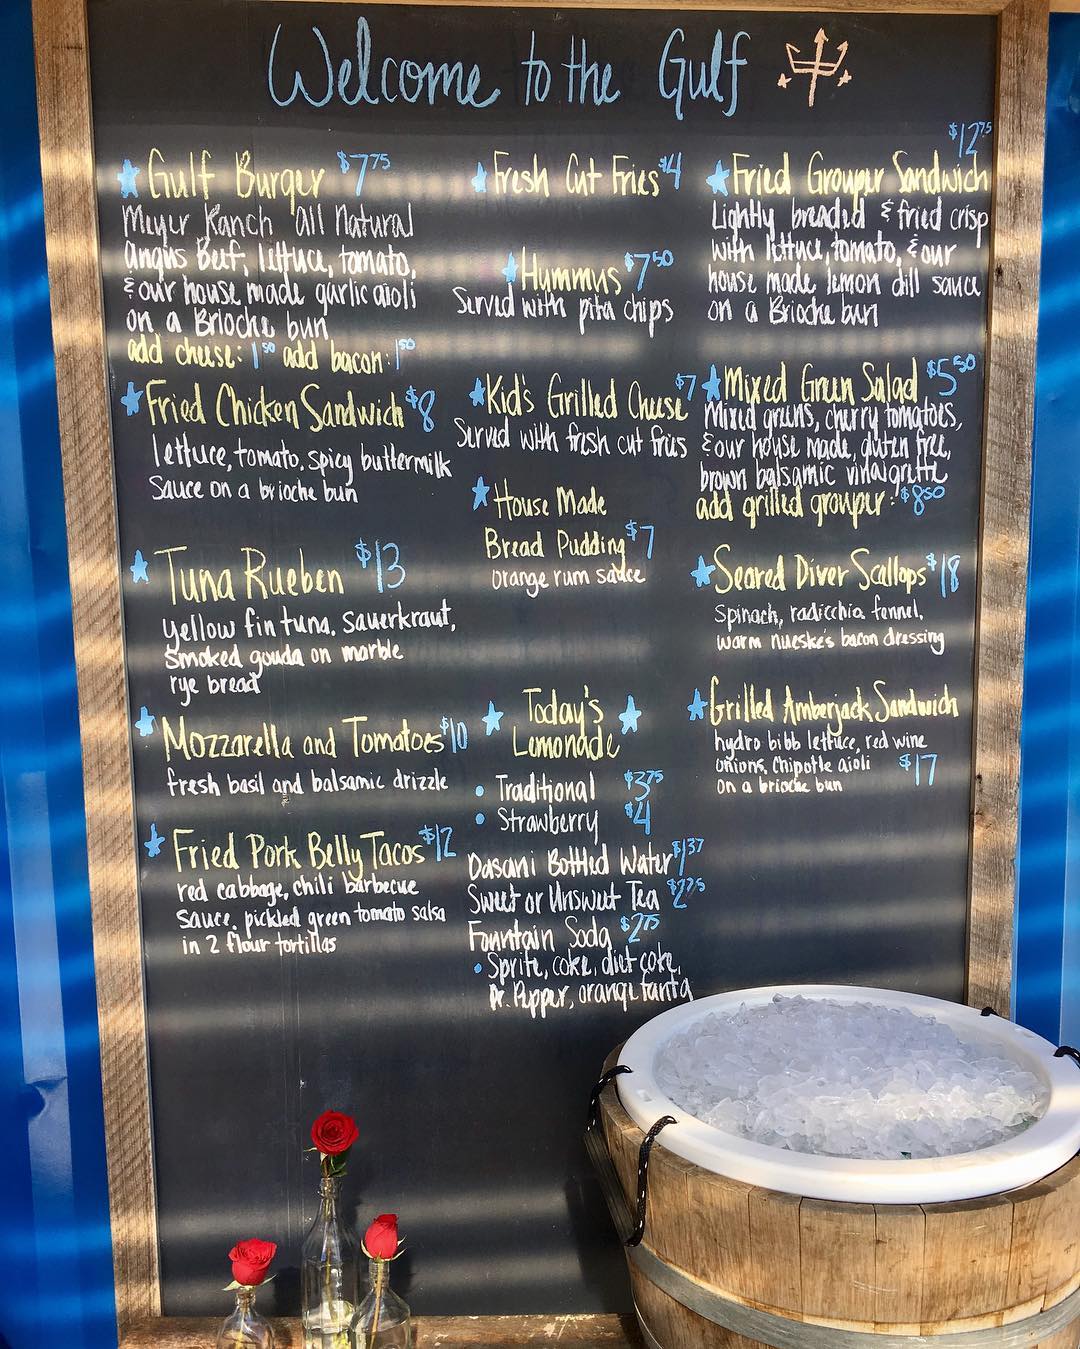 Welcome to the Gulf
★Gulf Burger $7.75
Meyer Ranch all Natural
angus Beef, lettuce, tomato,
& our house made garlic aioli
on a Brioche bun
add cheese: 1.50 add bacon: 1.50
★Fried Chicken Sandwich $8
lettuce, tomato, spicy buttermilk
Sauce on a brioche bun
★Tuna Rueben $13
yellow fin tuna, sauerkraut,
smoked gouda on marble
rye bread
★Mozzarella and Tomatoes $10
fresh basil and balsamic drizzle
★Fried Pork Belly Tacos $12
red cabbage, chili barbecue
sauce, pickled green tomato salsa
in 2 flour tortillas
★Fresh Cut Fries $4
★Hummus $7.50
Served with pita chips
★Kid's Grilled Cheese $7
Served with fresh cut fries
★House Made
Bread Pudding $7
orange rum sauce
★ Today's ★
Lemonade
• Traditional $3.75
• Strawberry $4
Dasani Bottled Water $1.37
Sweet or Unsweet Tea $2.75
Fountain Soda $2.75
• Sprite, coke, diet coke,
Dr. Pepper, orange fanta
$12.75
★Fried Grouper Sandwich
Lightly breaded & fried crisp
with lettuce, tomato, & our
house made lemon dill sauce
on a Brioche bun
★Mixed Green Salad $5.50
Mixed greens, cherry tomatoes,
& our house made, gluten free,
brown balsamic vinaigrette
add grilled grouper: $8.50
★Seared Diver Scallops $18
Spinach, radicchio, fennel,
warm nueske's bacon dressing
★Grilled Amberjack Sandwich
hydro bibb lettuce, red wine
onions, Chipotle aioli $17
on a brioche bun